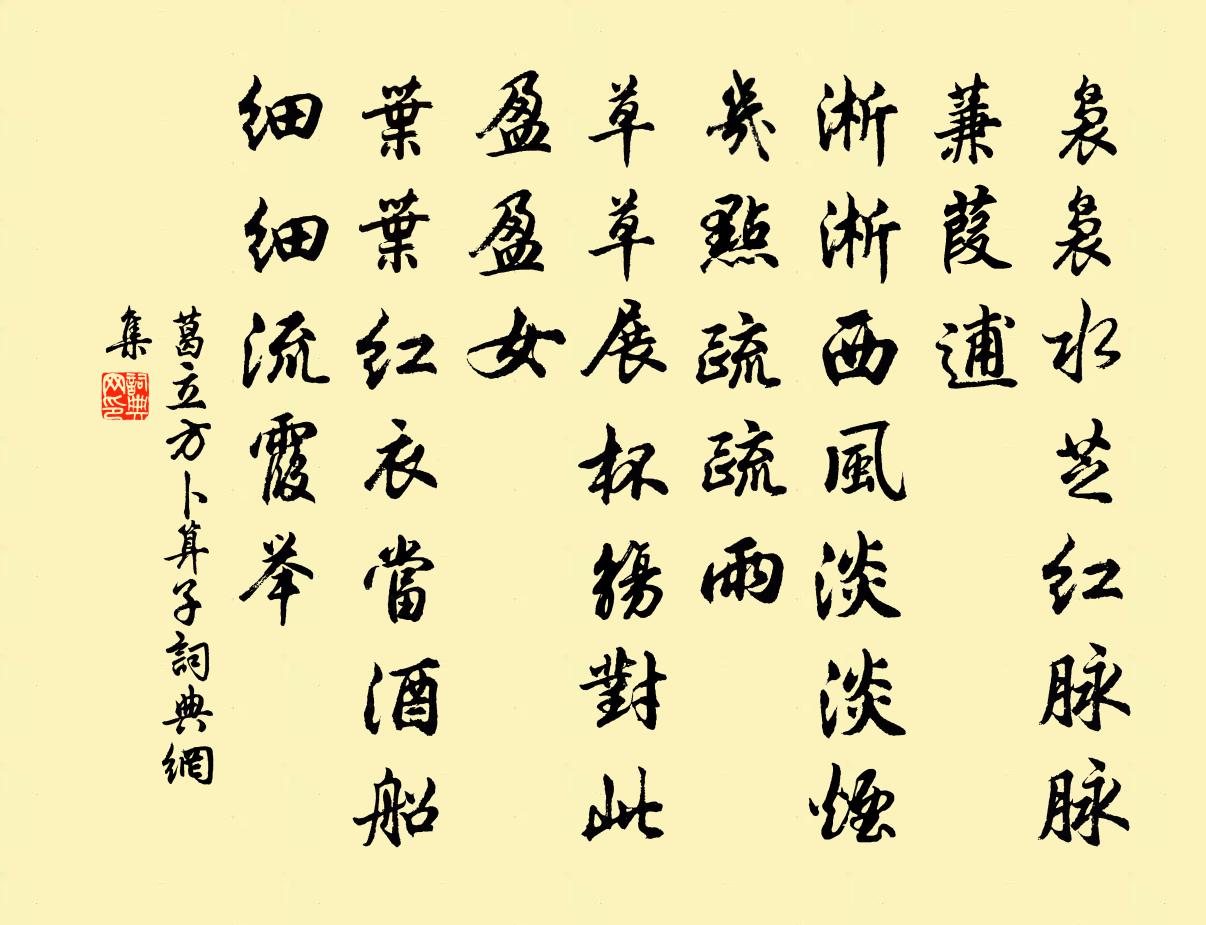 裊裊水芝紅脉脉
蒹葭逋
淅淅西風淡淡煙
幾點疏疏雨
草草展杯觴對此
盈盈女
葉葉紅衣當酒船
細細流霞举
葛立方卜算子詞典網
集
詞典网印